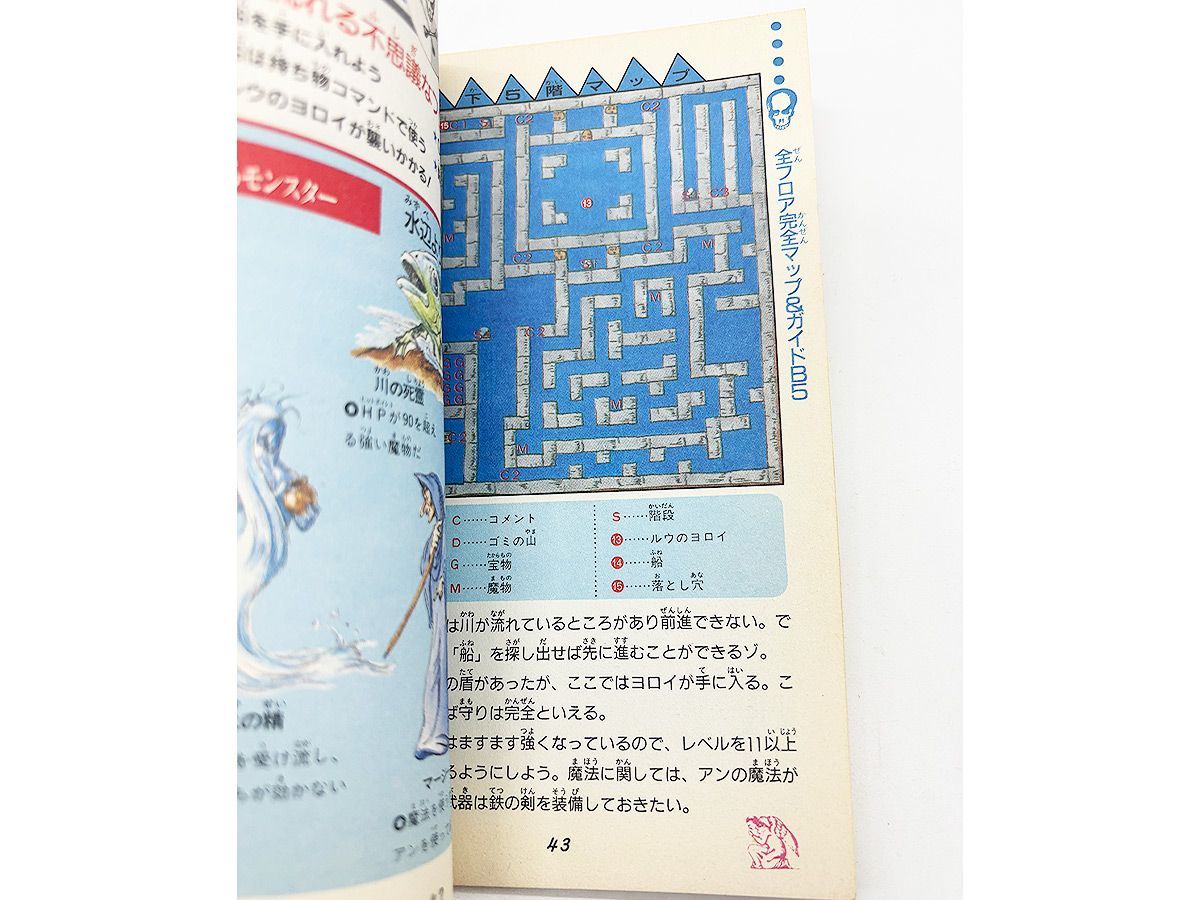 れる不思議な
を手に入れよう
は持ち物コマンドで使う
ルウのヨロイが襲いかかる!
モンスター
水辺
川の死霊
HPが90を超え
る強い魔物だ
の精
を受け流し、
が効かない
マージ
魔法を使
アンを使って
下5階マップ
15 C1 S C2 C2
13
S C3
M C2 S1 C2 M
M
S C2
G
G
G
G
M
C2 M
C2
C……コメント
D……ゴミの山
G……宝物
M……魔物
S……階段
13……ルウのヨロイ
14……船
15……落とし穴
は川が流れているところがあり前進できない。で
「船」を探し出せば先に進むことができるゾ。
の盾があったが、ここではヨロイが手に入る。こ
ば守りは完全といえる。
はますます強くなっているので、レベルを11以上
るようにしよう。魔法に関しては、アンの魔法が
武器は鉄の剣を装備しておきたい。
43
全フロア完全マップ&ガイドB5